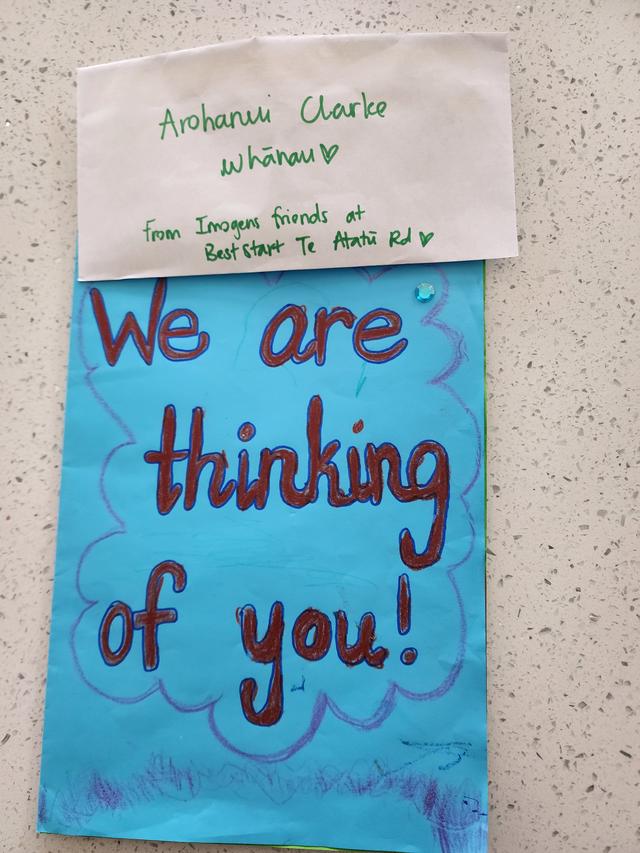 Arohanui Clarke
whānau
From Imogens friends at
BestStart Te Atatū Rd
We are
thinking
of you!